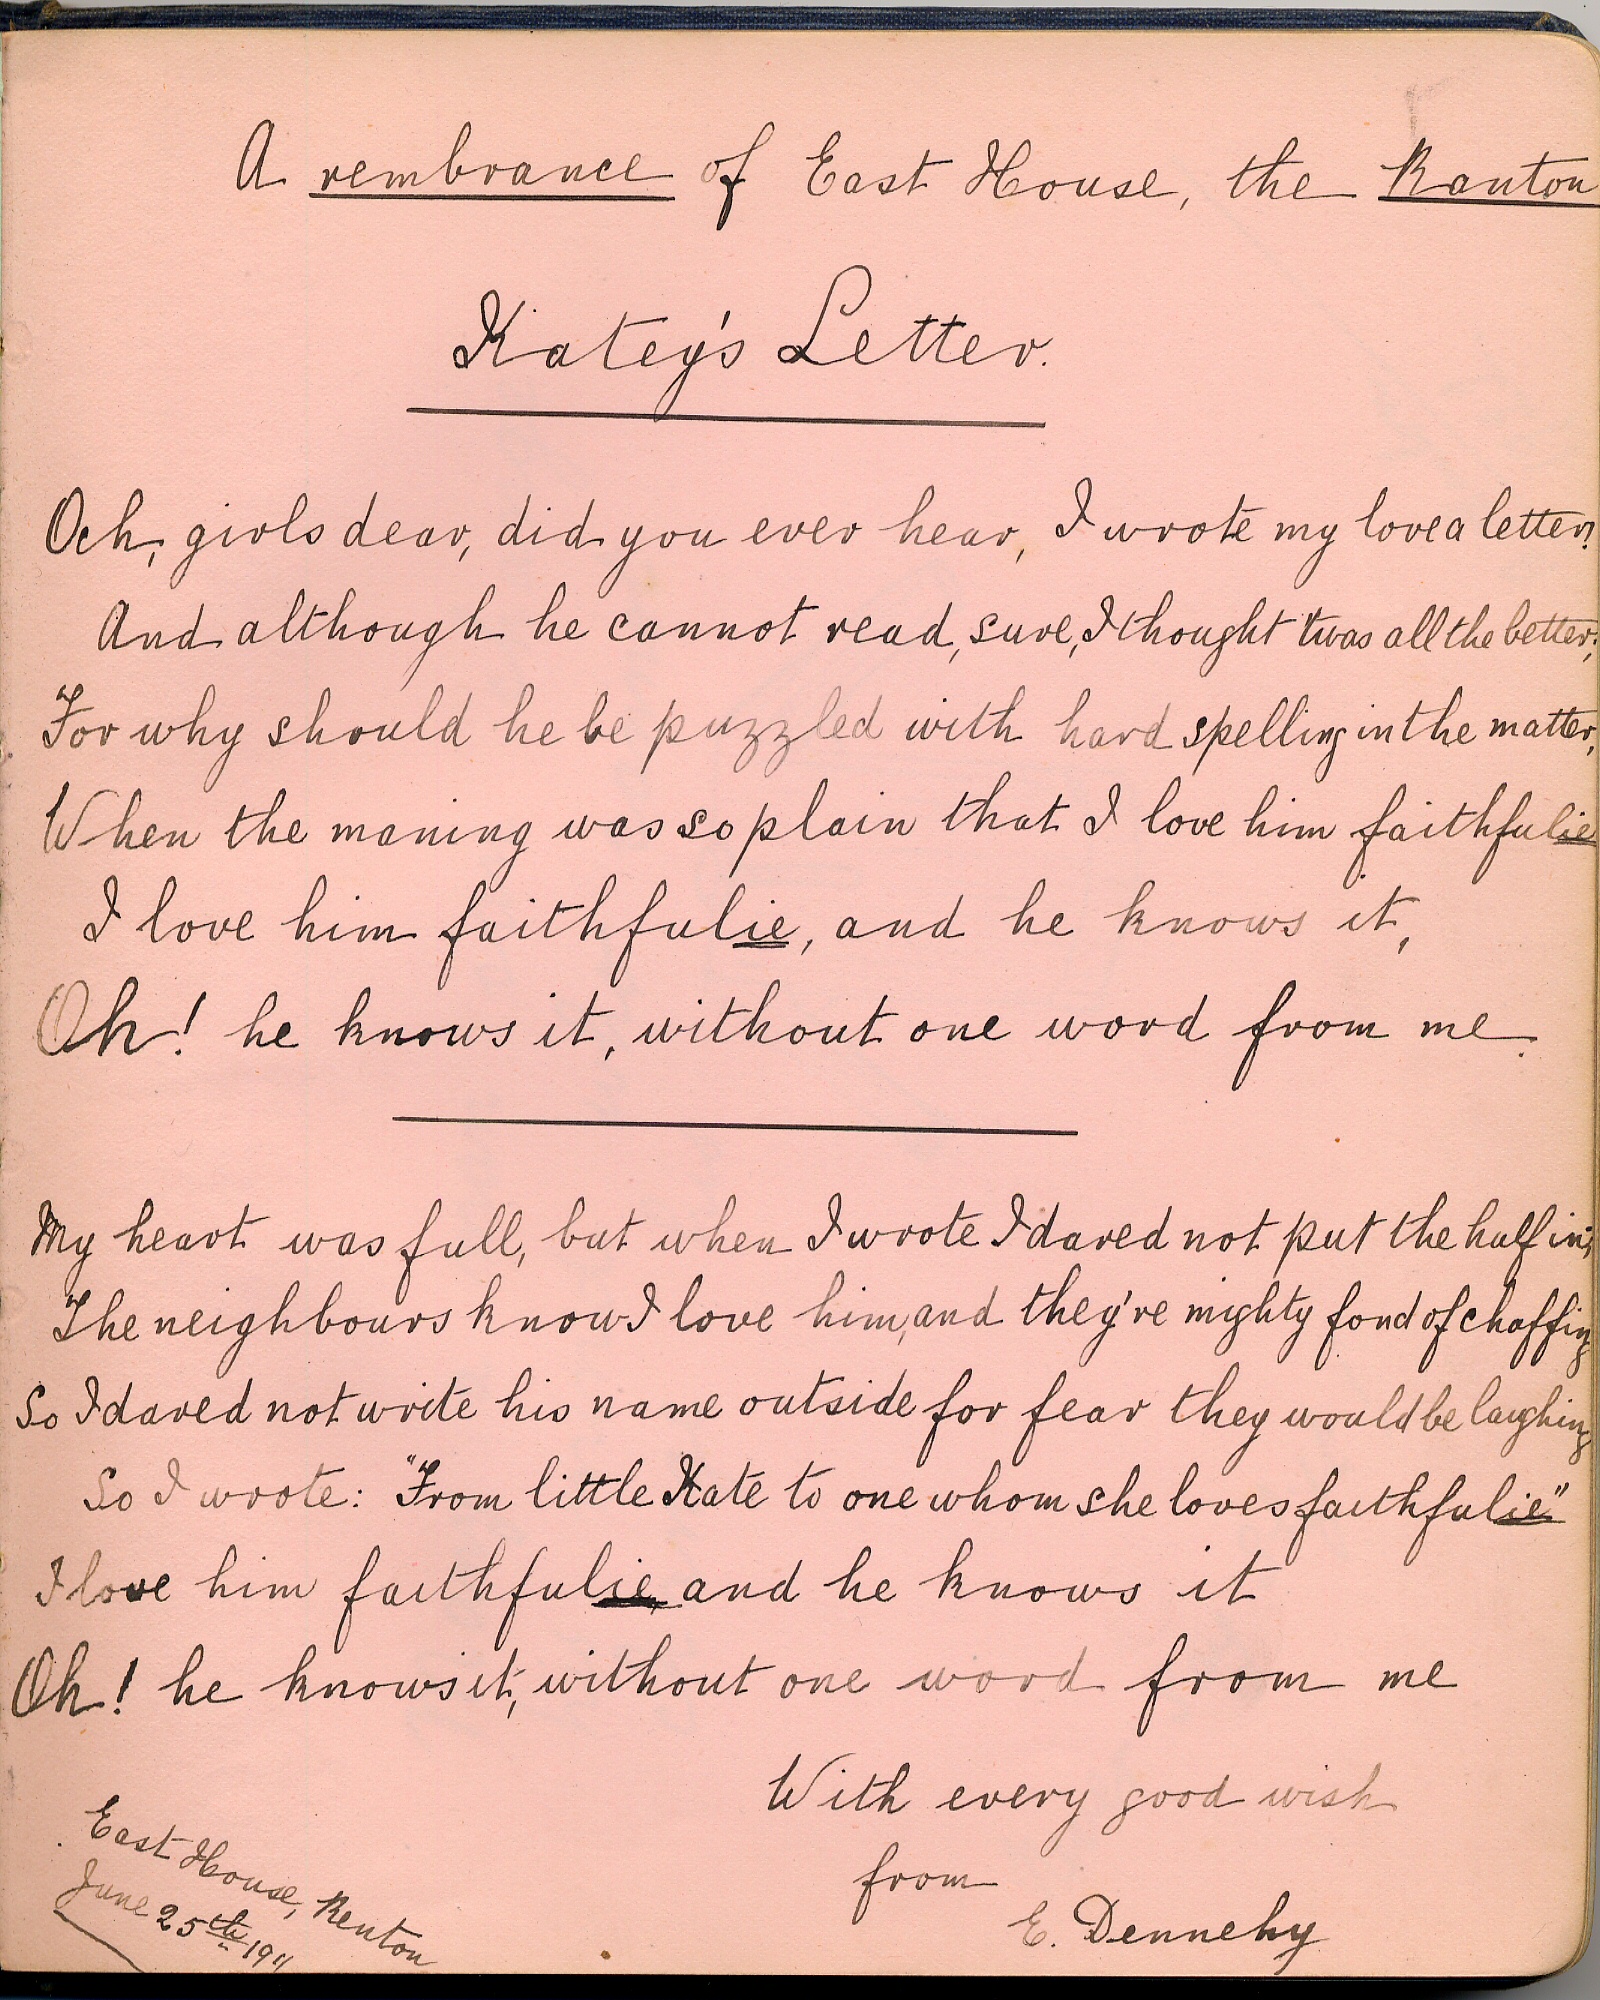 A rembrance of East House, the Ranton
Katey's Letter.
Och, girls dear, did you ever hear, I wrote my love a letter?
And although he cannot read, sure, I thought 'twas all the better;
For why should he be puzzled with hard spelling in the matter,
When the maning was so plain that I love him faithfulie
I love him faithfulie, and he knows it,
Oh! he knows it, without one word from me.
My heart was full, but when I wrote I dared not put the half in;
The neighbours know I love him, and they're mighty fond of chaffing
So I dared not write his name outside for fear they would be laughing
So I wrote: "From little Kate to one whom she loves faithfulie"
I love him faithfulie, and he knows it
Oh! he knows it, without one word from me
With every good wish
from
E. Dennehy
East House, Renton
June 25th 1911